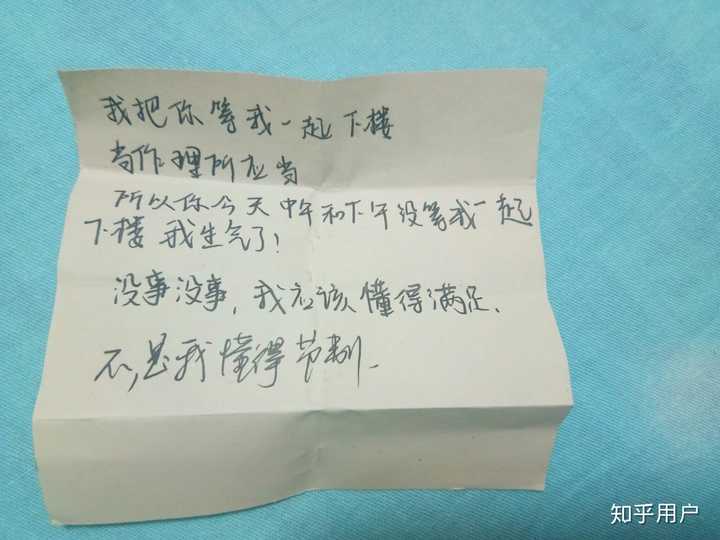 我把你等我一起下楼
当作理所应当
所以你今天中午和下午没等我一起
下楼 我生气了!
没事没事,我应该懂得满足、
不,是我懂得节制.
知乎用户